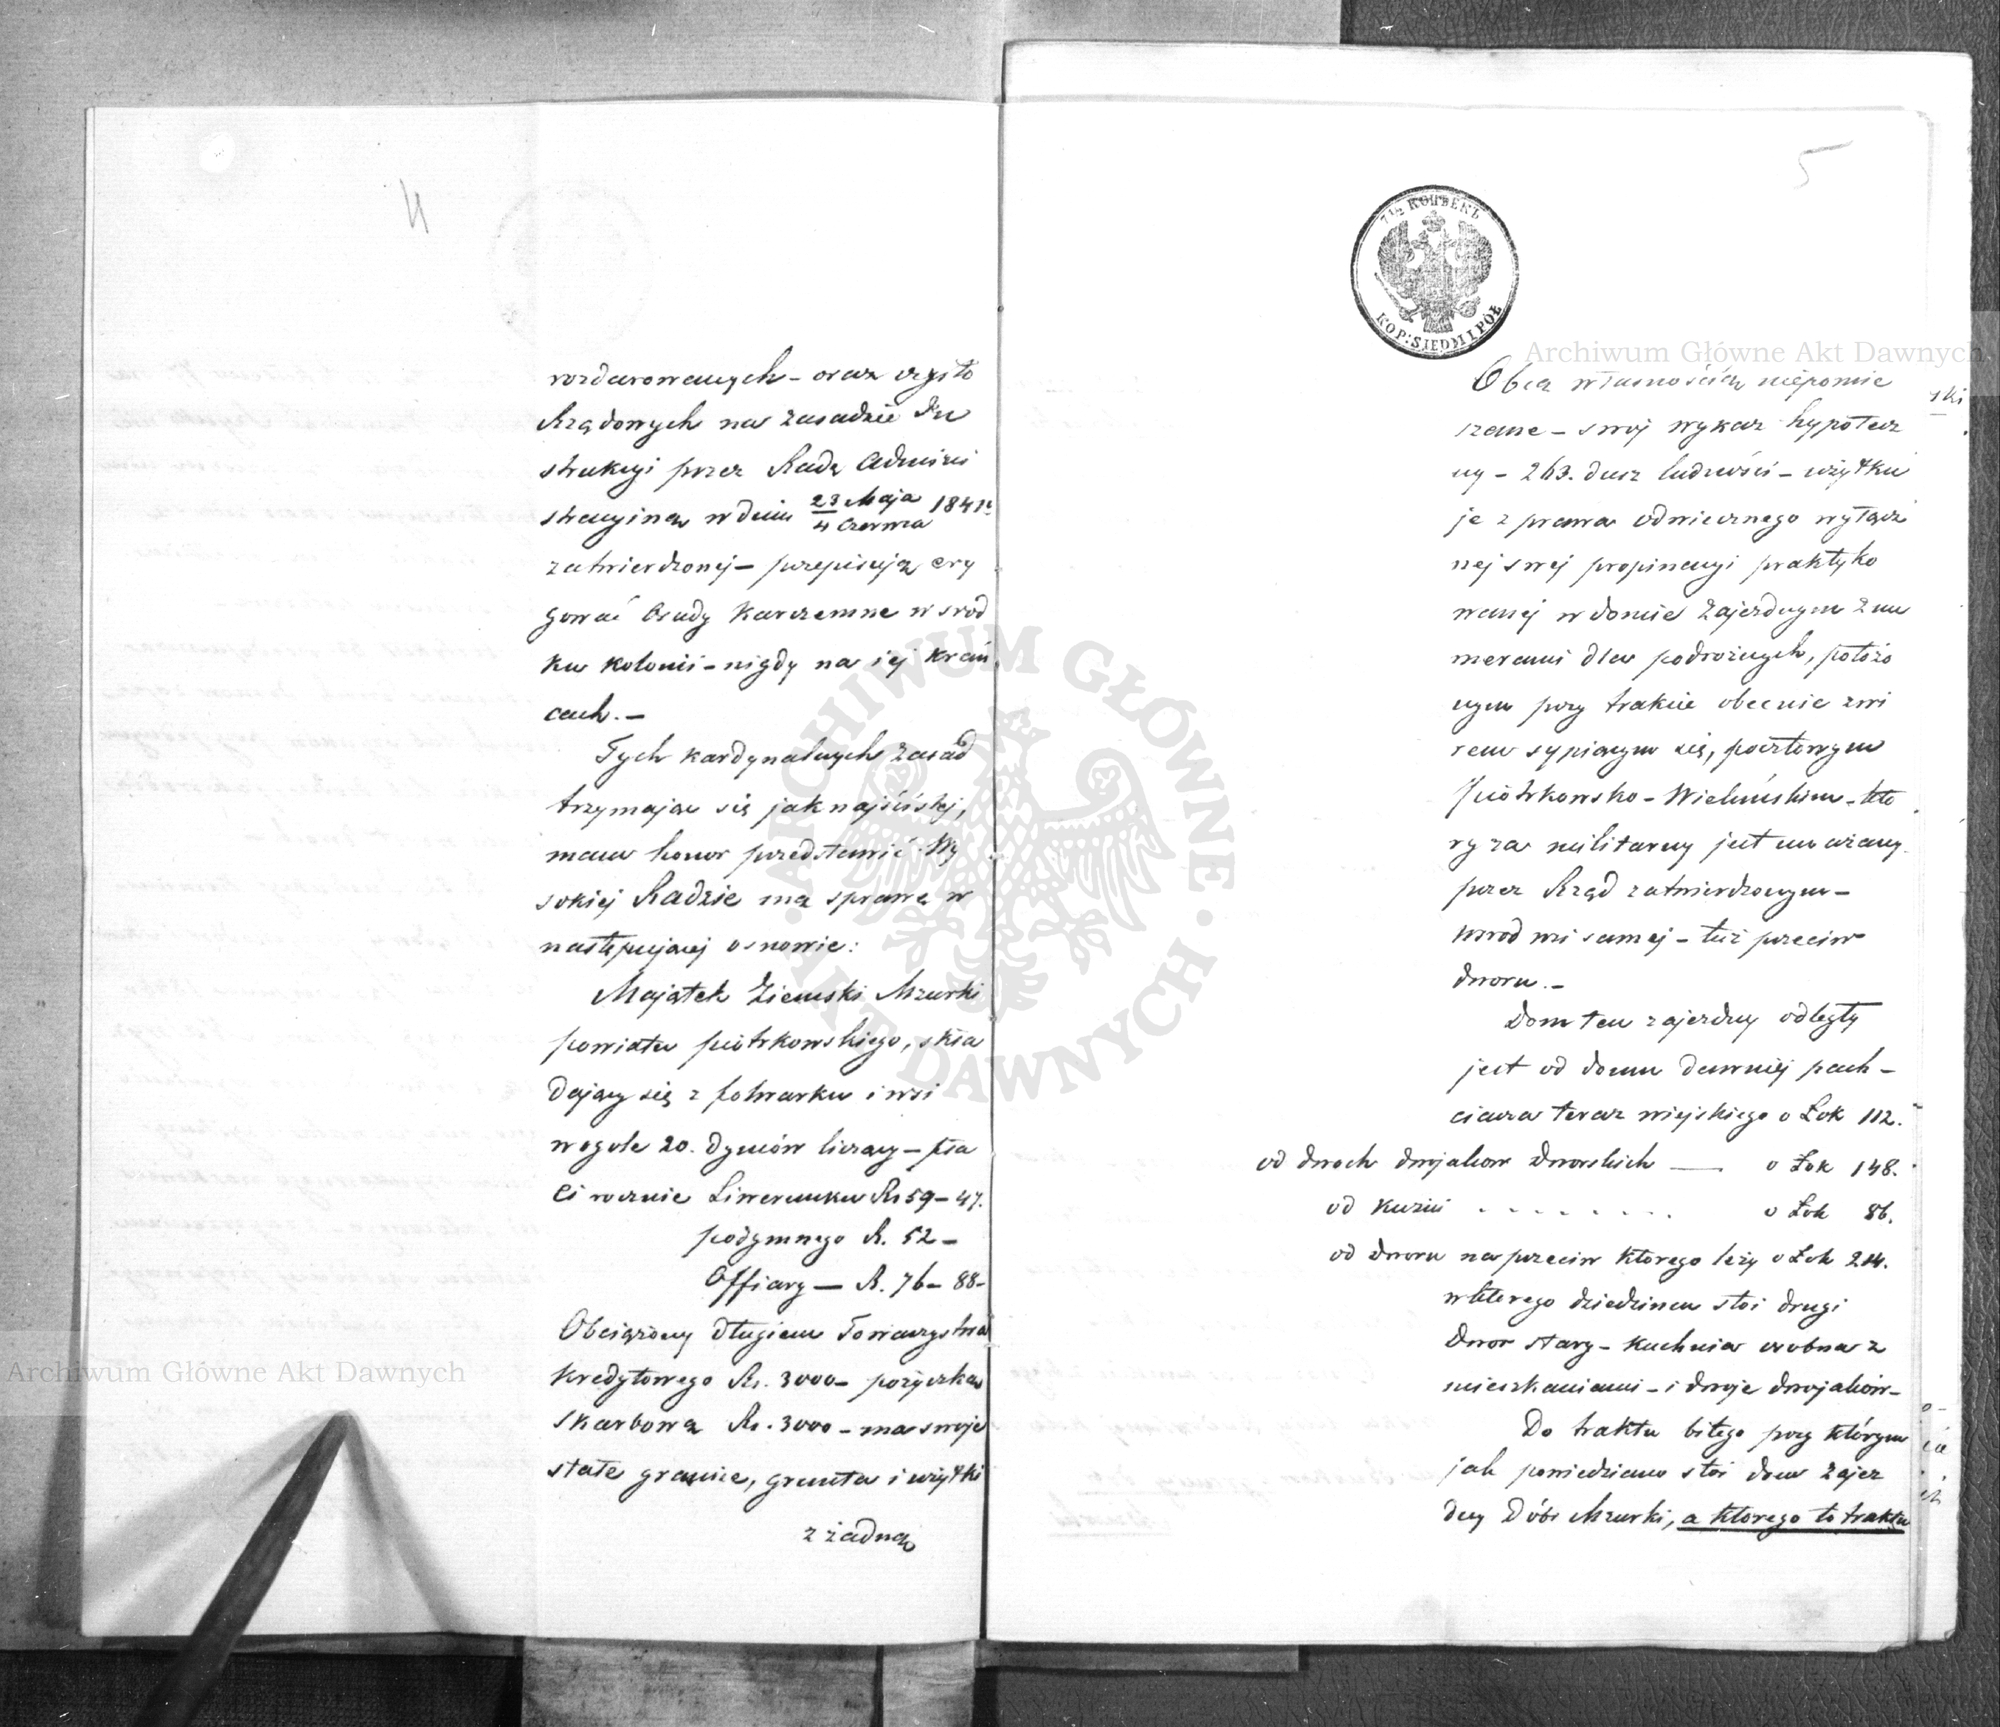 4
rozdarowanych – oraz czysto
Rządowych na zasadzie In
strukcyi przez Radę Admini
stracyiną w dniu 23 Maja / 4 Czerwca 1841 r.
zatwierdzonej – przepisują ery
gować Osady Karczemne w srod
ku kolonii – nigdy na iej krań
cach. –
Tych kardynalnych zasad
trzymając się jak najściślej,
mam honor przedstawić Wy
sokiej Radzie mą sprawę w
następującej osnowie:
Majątek Ziemski Mzurki
powiatu piotrkowskiego, skła
dający się z folwarku i wsi
w ogóle 20. dymów liczący – pła
ci rocznie Liwerunku Rs 59 – 47.
podymnego R. 52 –
Offiary – R. 76 – 88 –
Obciążony długiem Towarzystwa
Kredytowego Rs. 3000 – pożyczką
Skarbową Rs. 3000 – ma swoje
stałe granice, grunta i użytki
z żadną
5
7½ КОПѢЕКЪ
KOP: SIEDM I PÓŁ
Obcą własnością niepomie
szane – swój wykaz hypotecz
ny – 263. dusz ludności – użytku
je z prawa odwiecznego wyłącz
nej swej propinacyi praktyko
wanej w domie Zajezdnym z nu
merami dla podróżnych, położo
nym przy trakcie obecnie żwi
rem sypiącym się, pocztowym
Piotrkowsko – Wieluńskim – któ
ry za militarny jest uważany
przez Rząd zatwierdzonym –
wśrod wsi samej – tuż przeciw
dworu. –
Dom ten zajezdny odległy
jest od domu dawniej pach –
ciarza teraz wiejskiego o Łok 112.
od dwoch dwojaków Dworskich — o Łok 148.
od Kuźni . . . . . . . . o Łok 86.
od Dworu naprzeciw którego leży o Łok 214.
w którego dziedzińcu stoi drugi
Dwor stary – Kuchnia osobna z
mieszkaniami – i dwoje dwojaków –
Do traktu bitego przy którym
jak powiedziano stoi dom Zajez
dny Dóbr Mzurki, a którego to traktu
Archiwum Główne Akt Dawnych
Archiwum Główne Akt Dawnych
ARCHIWUM GŁÓWNE
AKT DAWNYCH